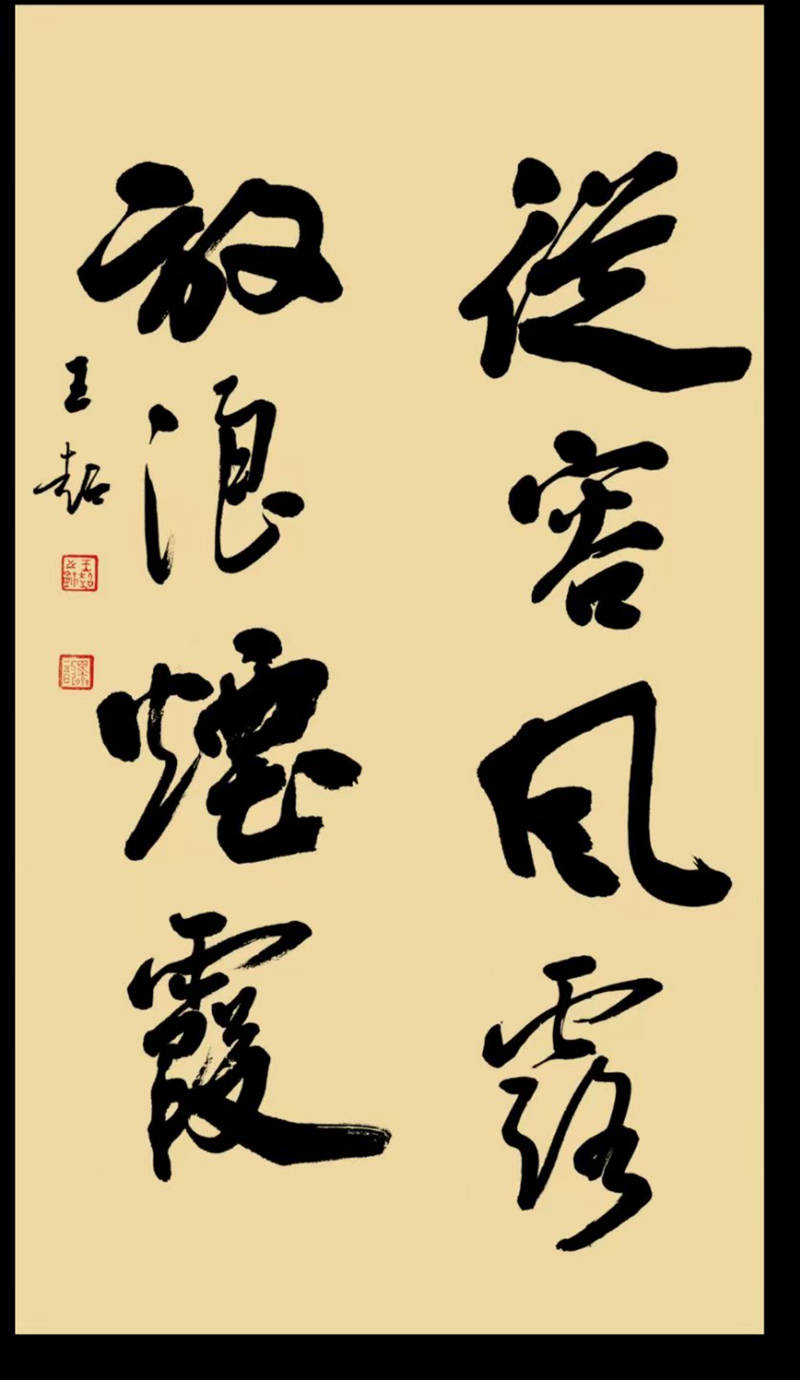 從容風露
放浪煙霞
王超